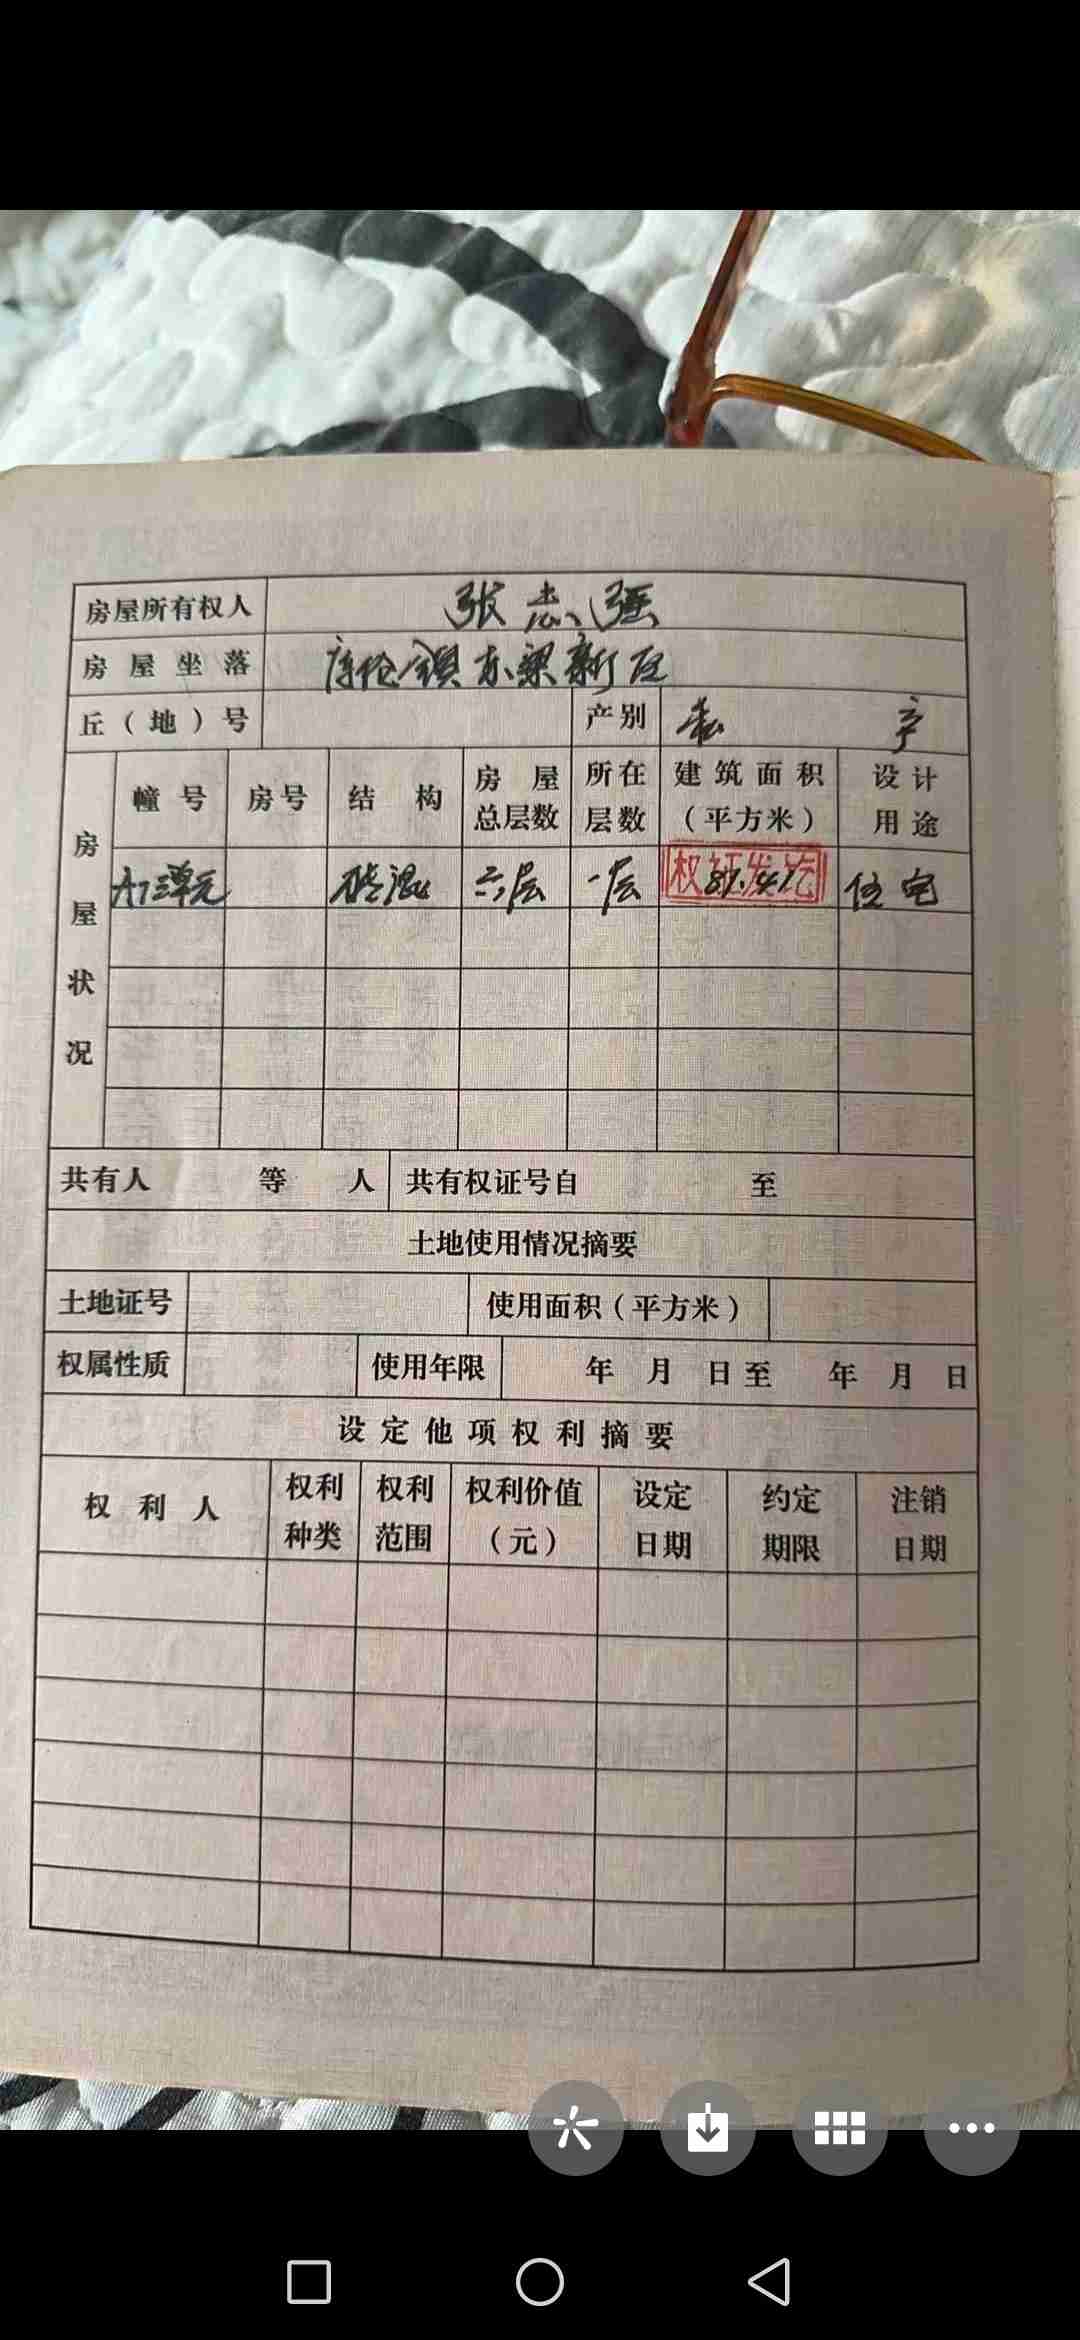 房屋所有权人 张志强
房屋坐落 库伦镇东梁新区
丘（地）号 产别 私产
房屋状况
幢号 房号 结构 房屋总层数 所在层数 建筑面积（平方米） 设计用途
砖混 六层 一层 住宅
权证发讫
共有人 等 人 共有权证号自 至
土地使用情况摘要
土地证号 使用面积（平方米）
权属性质 使用年限 年 月 日至 年 月 日
设定他项权利摘要
权利人 权利种类 权利范围 权利价值（元） 设定日期 约定期限 注销日期